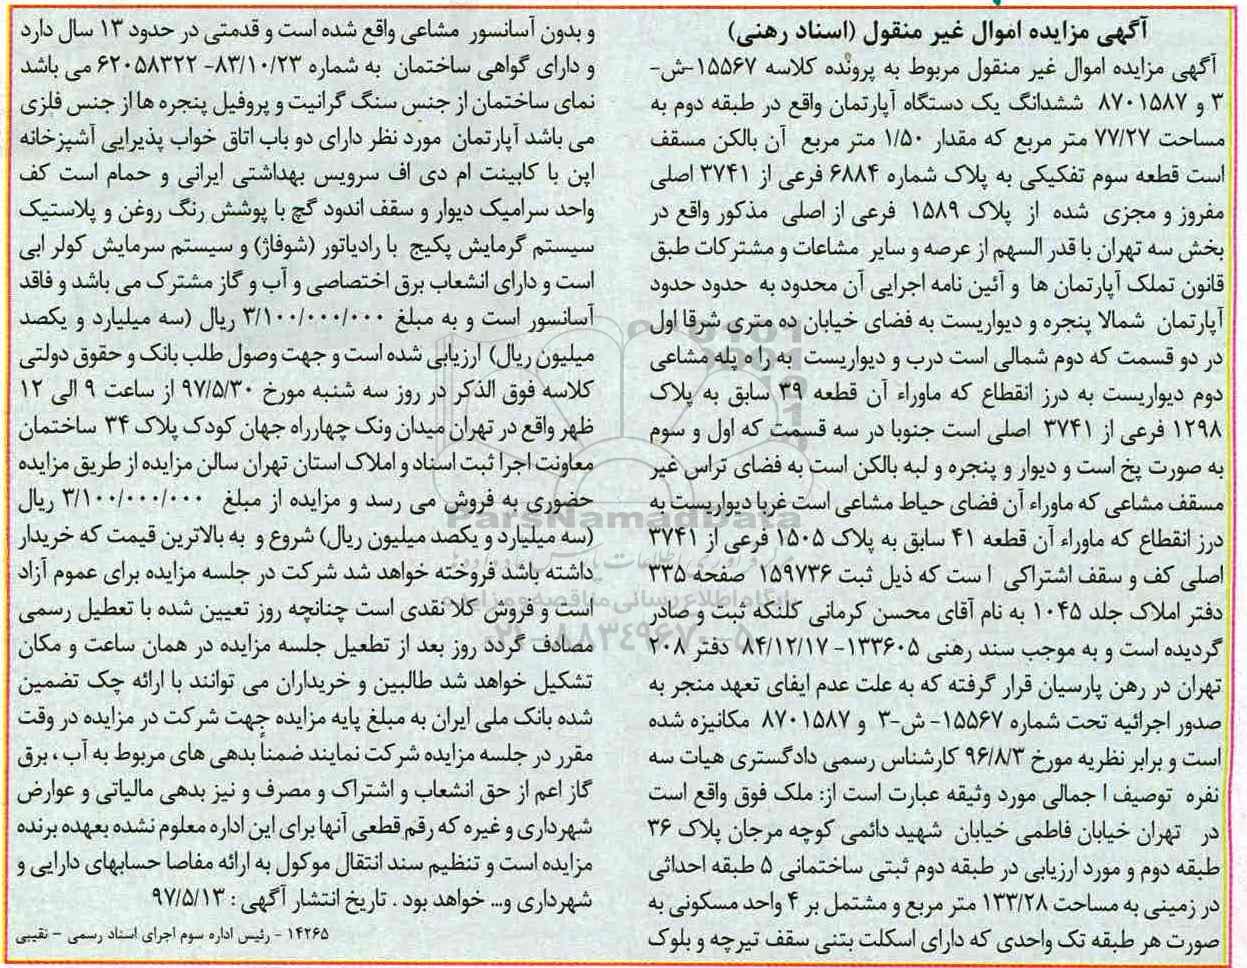 آگهی مزایده اموال غیر منقول (اسناد رهنی)
آگهی مزایده اموال غیر منقول مربوط به پرونده کلاسه ۱۵۵۶۷-ش-
۳ و ۸۷۰۱۵۸۷ ششدانگ یک دستگاه آپارتمان واقع در طبقه دوم به
مساحت ۷۷/۲۷ متر مربع که مقدار ۱/۵۰ متر مربع آن بالکن مسقف
است قطعه سوم تفکیکی به پلاک شماره ۶۸۸۴ فرعی از ۳۷۴۱ اصلی
مفروز و مجزی شده از پلاک ۱۵۸۹ فرعی از اصلی مذکور واقع در
بخش سه تهران با قدر السهم از عرصه و سایر مشاعات و مشترکات طبق
قانون تملک آپارتمان ها و آئین نامه اجرایی آن محدود به حدود حدود
آپارتمان شمالا پنجره و دیواریست به فضای خیابان ده متری شرقا اول
در دو قسمت که دوم شمالی است درب و دیواریست به راه پله مشاعی
دوم دیواریست به درز انقطاع که ماوراء آن قطعه ۳۹ سابق به پلاک
۱۲۹۸ فرعی از ۳۷۴۱ اصلی است جنوبا در سه قسمت که اول و سوم
به صورت پخ است و دیوار و پنجره و لبه بالکن است به فضای تراس غیر
مسقف مشاعی که ماوراء آن فضای حیاط مشاعی است غربا دیواریست به
درز انقطاع که ماوراء آن قطعه ۴۱ سابق به پلاک ۱۵۰۵ فرعی از ۳۷۴۱
اصلی کف و سقف اشتراکی ا ست که ذیل ثبت ۱۵۹۷۳۶ صفحه ۳۳۵
دفتر املاک جلد ۱۰۴۵ به نام آقای محسن کرمانی کلنکه ثبت و صادر
گردیده است و به موجب سند رهنی ۱۳۳۶۰۵- ۸۴/۱۲/۱۷ دفتر ۲۰۸
تهران در رهن پارسیان قرار گرفته که به علت عدم ایفای تعهد منجر به
صدور اجرائیه تحت شماره ۱۵۵۶۷- ش-۳ و ۸۷۰۱۵۸۷ مکانیزه شده
است و برابر نظریه مورخ ۹۶/۸/۳ کارشناس رسمی دادگستری هیات سه
نفره توصیف ا جمالی مورد وثیقه عبارت است از: ملک فوق واقع است
در تهران خیابان فاطمی خیابان شهید دائمی کوچه مرجان پلاک ۳۶
طبقه دوم و مورد ارزیابی در طبقه دوم ثبتی ساختمانی ۵ طبقه احداثی
در زمینی به مساحت ۱۳۳/۲۸ متر مربع و مشتمل بر ۴ واحد مسکونی به
صورت هر طبقه تک واحدی که دارای اسکلت بتنی سقف تیرچه و بلوک
و بدون آسانسور مشاعی واقع شده است و قدمتی در حدود ۱۳ سال دارد
و دارای گواهی ساختمان به شماره ۸۳/۱۰/۲۳- ۶۲۰۵۸۳۲۲ می باشد
نمای ساختمان از جنس سنگ گرانیت و پروفیل پنجره ها از جنس فلزی
می باشد آپارتمان مورد نظر دارای دو باب اتاق خواب پذیرایی آشپزخانه
اپن با کابینت ام دی اف سرویس بهداشتی ایرانی و حمام است کف
واحد سرامیک دیوار و سقف اندود گچ با پوشش رنگ روغن و پلاستیک
سیستم گرمایش پکیج با رادیاتور (شوفاژ) و سیستم سرمایش کولر ابی
است و دارای انشعاب برق اختصاصی و آب و گاز مشترک می باشد و فاقد
آسانسور است و به مبلغ ۳/۱۰۰/۰۰۰/۰۰۰ ریال (سه میلیارد و یکصد
میلیون ریال) ارزیابی شده است و جهت وصول طلب بانک و حقوق دولتی
کلاسه فوق الذکر در روز سه شنبه مورخ ۹۷/۵/۳۰ از ساعت ۹ الی ۱۲
ظهر واقع در تهران میدان ونک چهارراه جهان کودک پلاک ۳۴ ساختمان
معاونت اجرا ثبت اسناد و املاک استان تهران سالن مزایده از طریق مزایده
حضوری به فروش می رسد و مزایده از مبلغ ۳/۱۰۰/۰۰۰/۰۰۰ ریال
(سه میلیارد و یکصد میلیون ریال) شروع و به بالاترین قیمت که خریدار
داشته باشد فروخته خواهد شد شرکت در جلسه مزایده برای عموم آزاد
است و فروش کلا نقدی است چنانچه روز تعیین شده با تعطیل رسمی
مصادف گردد روز بعد از تطعیل جلسه مزایده در همان ساعت و مکان
تشکیل خواهد شد طالبین و خریداران می توانند با ارائه چک تضمین
شده بانک ملی ایران به مبلغ پایه مزایده جهت شرکت در مزایده در وقت
مقرر در جلسه مزایده شرکت نمایند ضمناً بدهی های مربوط به آب ، برق
گاز اعم از حق انشعاب و اشتراک و مصرف و نیز بدهی مالیاتی و عوارض
شهرداری و غیره که رقم قطعی آنها برای این اداره معلوم نشده بعهده برنده
مزایده است و تنظیم سند انتقال موکول به ارائه مفاصا حسابهای دارایی و
شهرداری و... خواهد بود . تاریخ انتشار آگهی : ۹۷/۵/۱۳
۱۴۲۶۵ - رئیس اداره سوم اجرای اسناد رسمی - نقیبی
ParsNamadData
پایگاه اطلاع رسانی مناقصه و مزایده
۰۲۱-۸۸۳۴۹۶۷۰-۵